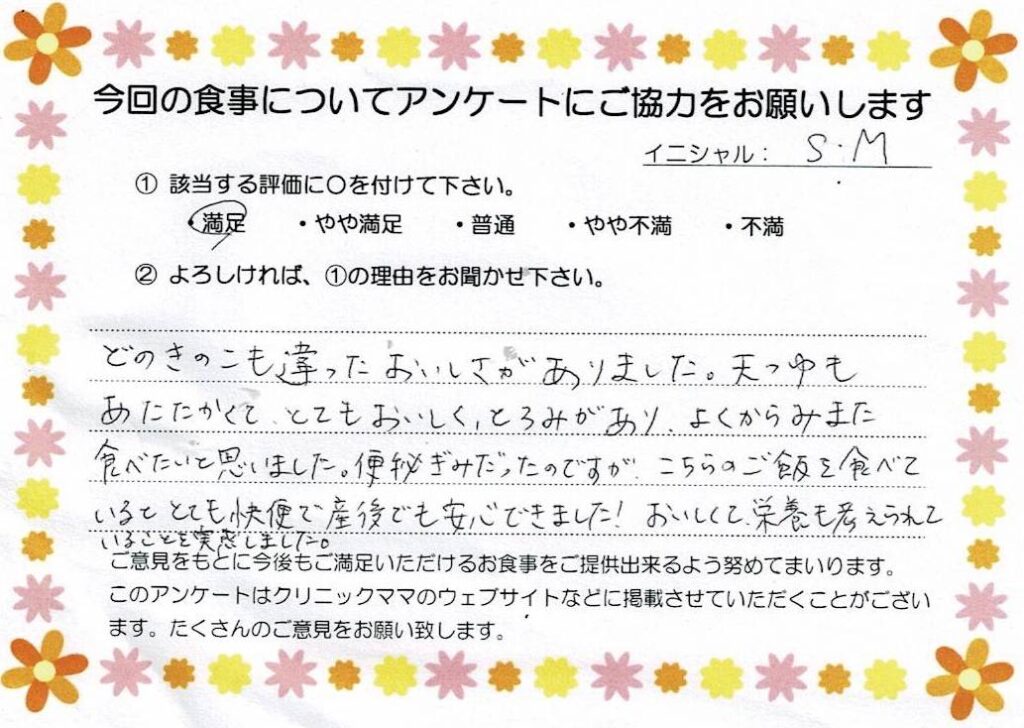 今回の食事についてアンケートにご協力をお願いします
イニシャル： S.M
① 該当する評価に○を付けて下さい。
・満足 ・やや満足 ・普通 ・やや不満 ・不満
② よろしければ、①の理由をお聞かせ下さい。
どのきのこも違ったおいしさがありました。天つゆも
あたたかくて、とてもおいしく、とろみがあり、よくからみまた
食べたいと思いました。便秘ぎみだったのですが、こちらのご飯を食べて
いるととても快便で産後でも安心できました！ おいしくて、栄養も考えられて
いることを実感しました。
ご意見をもとに今後もご満足いただけるお食事をご提供出来るよう努めてまいります。
このアンケートはクリニックママのウェブサイトなどに掲載させていただくことがござい
ます。たくさんのご意見をお願い致します。